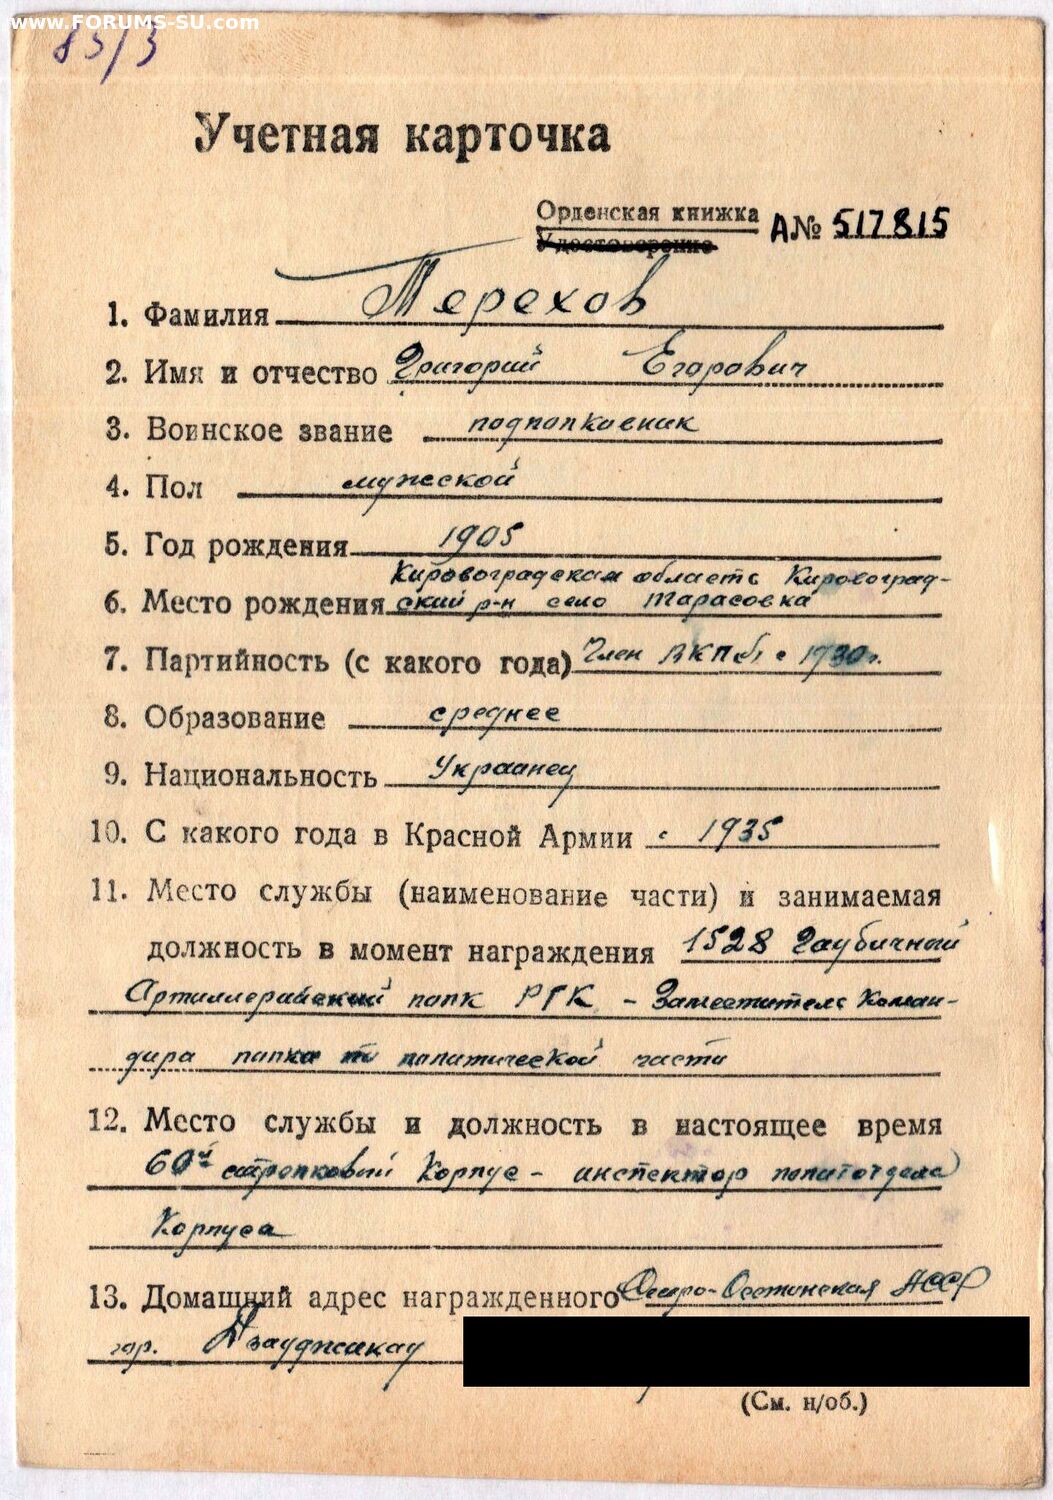 www.FORUMS-SU.com
83/3
Учетная карточка
Орденская книжка
Удостоверение
А№ 517815
1. Фамилия Терехов
2. Имя и отчество Григорий Егорович
3. Воинское звание подполковник
4. Пол мужской
5. Год рождения 1905
Кировоградская область Кировоград-
6. Место рождения ский р-н село Тарасовка
7. Партийность (с какого года) Член ВКПб с 1930г.
8. Образование среднее
9. Национальность Украинец
10. С какого года в Красной Армии с 1935
11. Место службы (наименование части) и занимаемая
должность в момент награждения 1528 Гаубичный
Артиллерийский полк РГК – Заместитель Коман-
дира полка по политической части
12. Место службы и должность в настоящее время
60й стрелковый Корпус – инспектор политотдела
Корпуса
13. Домашний адрес награжденного Северо-Осетинская АССР
гор. Дзауджикау
(См. н/об.)